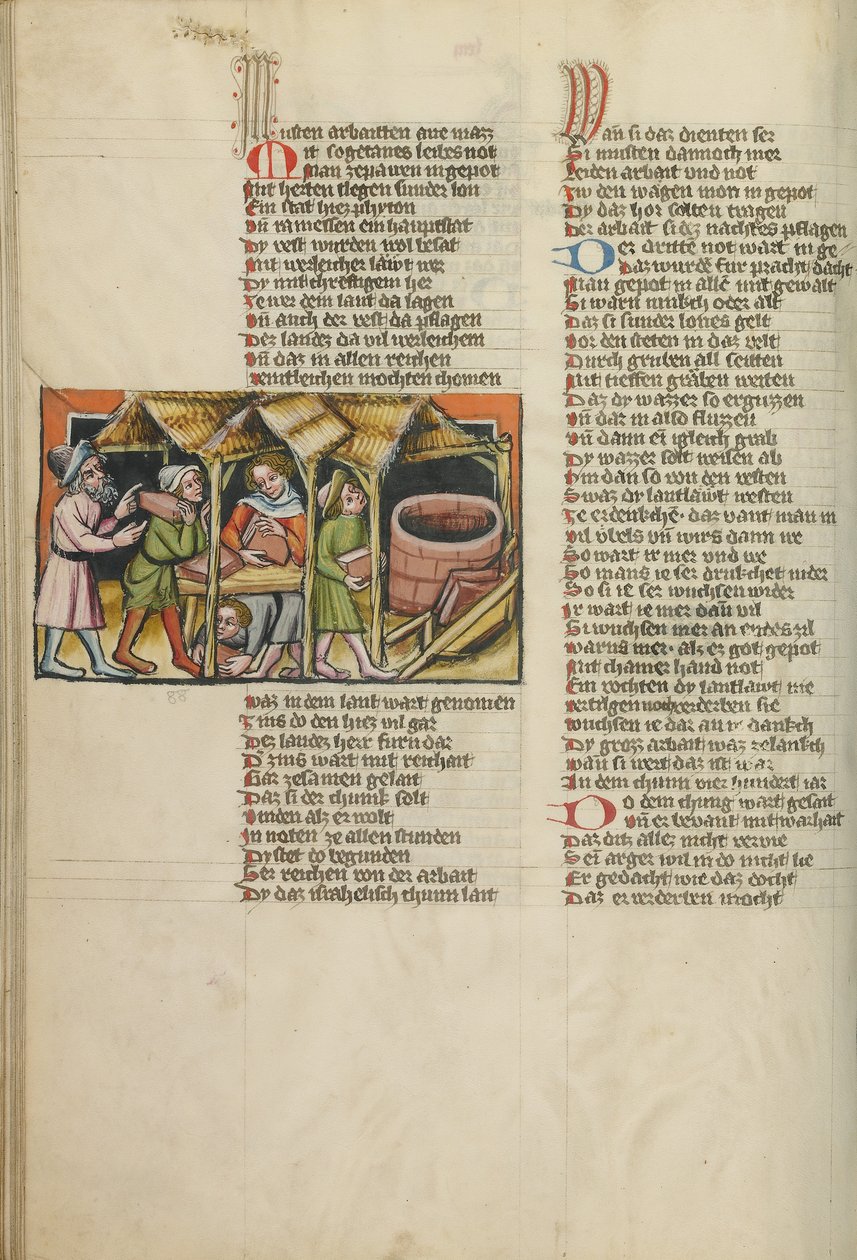 Musten arbaitten ane mazz
Mit sogetanes leibes not
Man ze pawen in gepot
Mit herten slegen sunder lon
Ein stat hiez phyton
Vn̄ ramessen ein hauptstat
Dy vest wurden wol besat
Mit werleicher läwt wer
Dy mit chreftigem her
Ze wer dem lant da lagen
Vn̄ auch der vest da pflagen
Dez landez da vil werleichem
Vn̄ daz in allen reichen
Veintleichen mochten chomen
Waz in dem lant wart genomen
Zins do den hiez vil gar
Dez landez herr furn dar
Dˢ zins wart mit reichait
Gar zesamen gelait
Daz si der chunik solt
Vinden alz er wolt
In noten ze allen stunden
Dy stet do begunden
Ser reichen von der arbait
Dy daz israhelisch chunn lait
Wan̄ si daz dienten ser
Si musten dannoch mer
Leiden arbait vnd not
Zw den wägen mon in gepot
Dy daz hor solten tragen
Der arbait si dez nachtes pflagen
Der dritte not wart in ge-
Daz wurdē fur pracht dacht
Man gepot in allē mit gewalt
Si warn iunkch oder alt
Daz si sunder lones gelt
Vor den steten in daz velt
Durch gruben all seitten
Mit tieffen gräben weiten
Daz dy wazzer so erguzzen
Vn̄ dar in also fluzzen
Vn̄ dann eī igleich grab
Dy wazzer solt weisen ab
Hin dan so von den vesten
Swaz dy lantläwt westen
Ze erdenkchē daz vant man in
Vil vbels vn̄ wirs dann we
So wart ir mer vnd we
So mans ie ser drukchet nider
So si ie ser wuchsen wider
Ir wart ie mer dan̄ vil
Si wuchsen mer an endes zil
Warns mer alz ez got gepot
Mit chainer hand not
Ein mochten dy lantläwt nie
Vertilgen noch verderben sie
Wuchsen ie dar an ir dankch
Dy grozz arbait waz ze lankch
Wan̄ si wert daz ist war
In dem chunn vier hundert iar
Do dem chung wart gesait
Vn̄ er bevant mit warhait
Daz ditz allez nicht vervie
Sein arger wil in do nicht lie
Er gedacht wie daz docht
Daz er verderben mocht
88